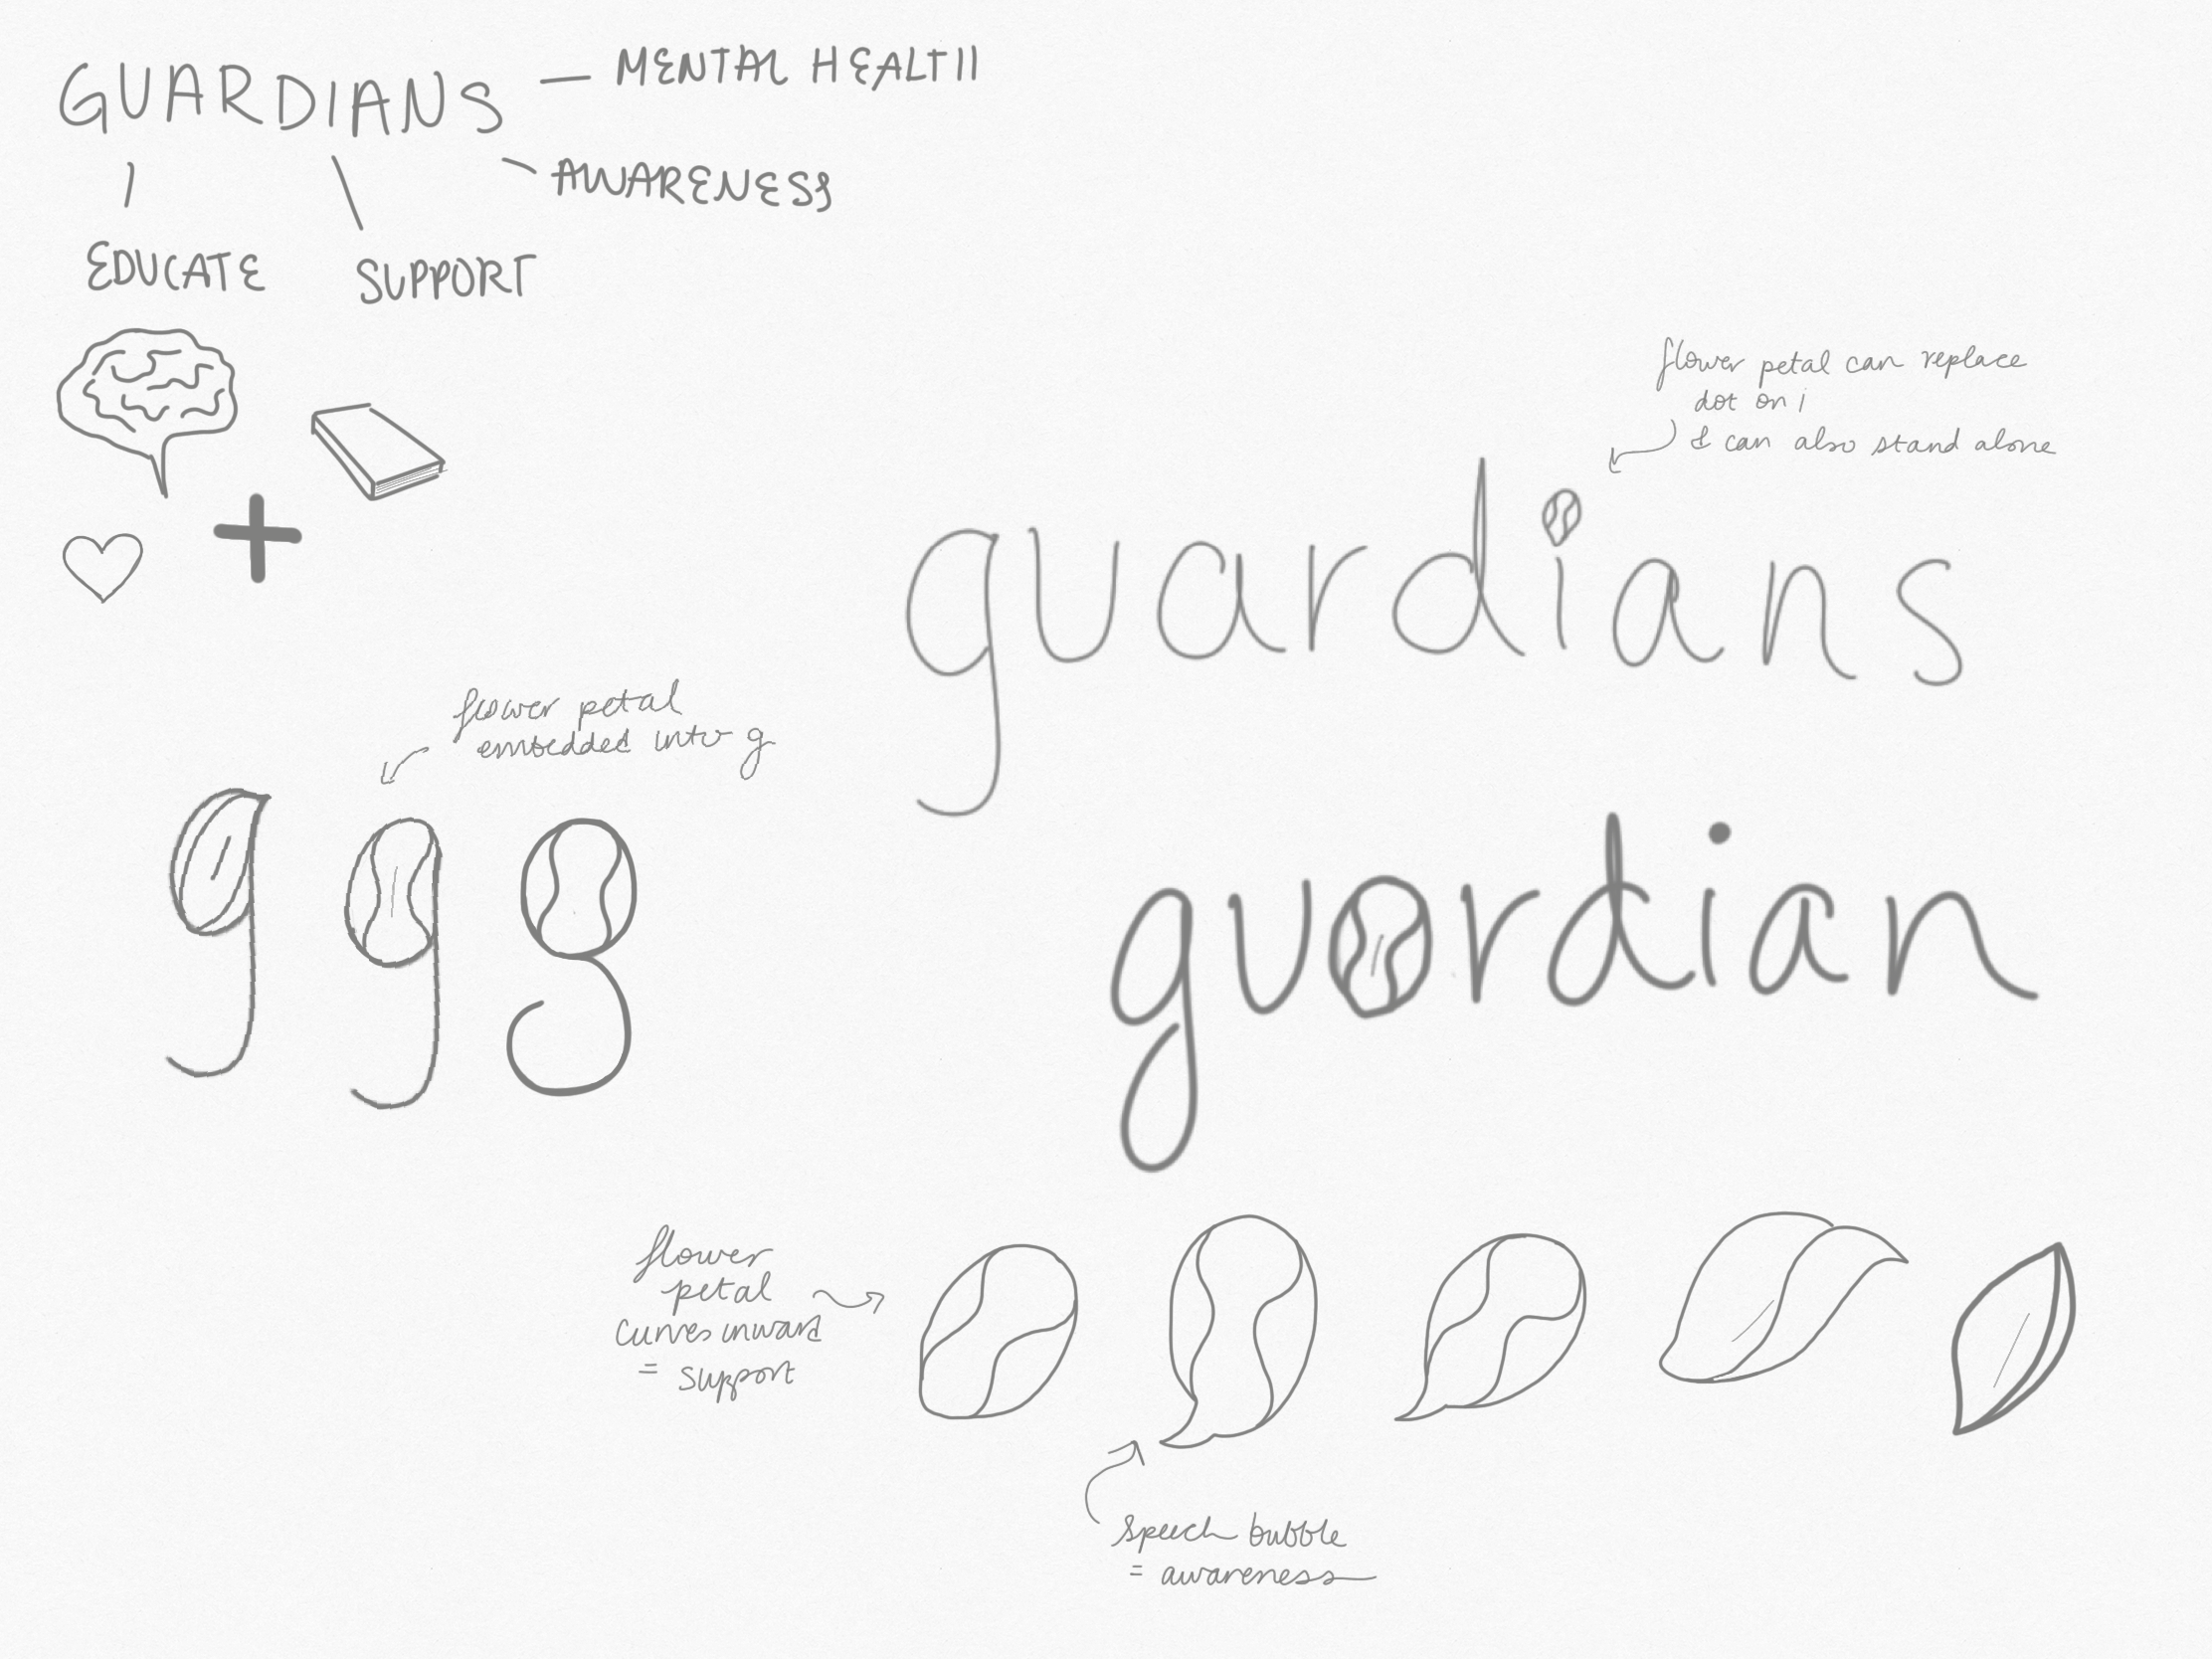 GUARDIANS
MENTAL HEALTH
AWARENESS
EDUCATE
SUPPORT
flower petal can replace
dot on i
& can also stand alone
guardians
flower petal
embedded into g
g g g
guardian
flower
petal
curves inward
= support
speech bubble
= awareness